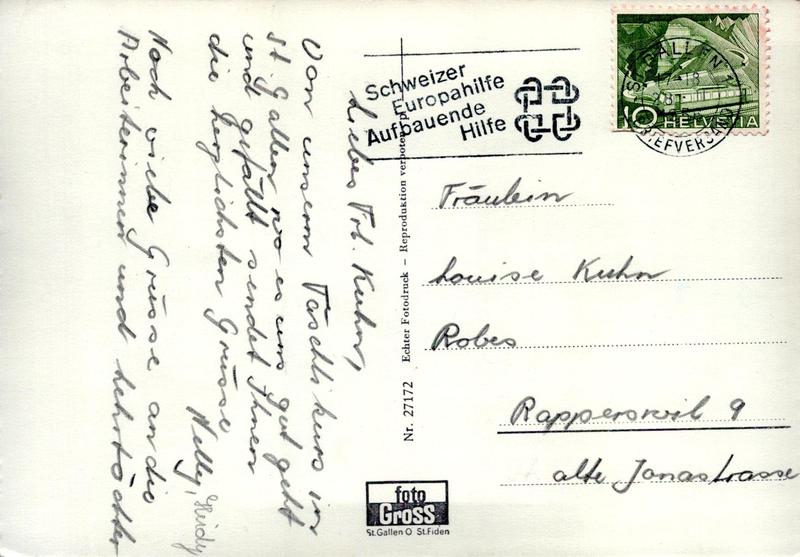 Liebes Frl. Kuhn,
Von unserm Täschlikurs in
St. Gallen, wo es uns gut geht
und gefällt sendet Ihnen
die herzlichsten Grüsse
Nelly, Heidy
Noch viele Grüsse an die
Arbeiterinnen und Lehrtöchter
Schweizer
Europahilfe
Aufbauende
Hilfe
ST. GALLEN
BRIEFVERSAND
10 HELVETIA
Fräulein
Louise Kuhn
Robes
Rapperswil 9
alte Jonastrasse
Nr. 27172 Echter Fotodruck – Reproduktion verboten
foto
Gross
St.Gallen O St.Fiden